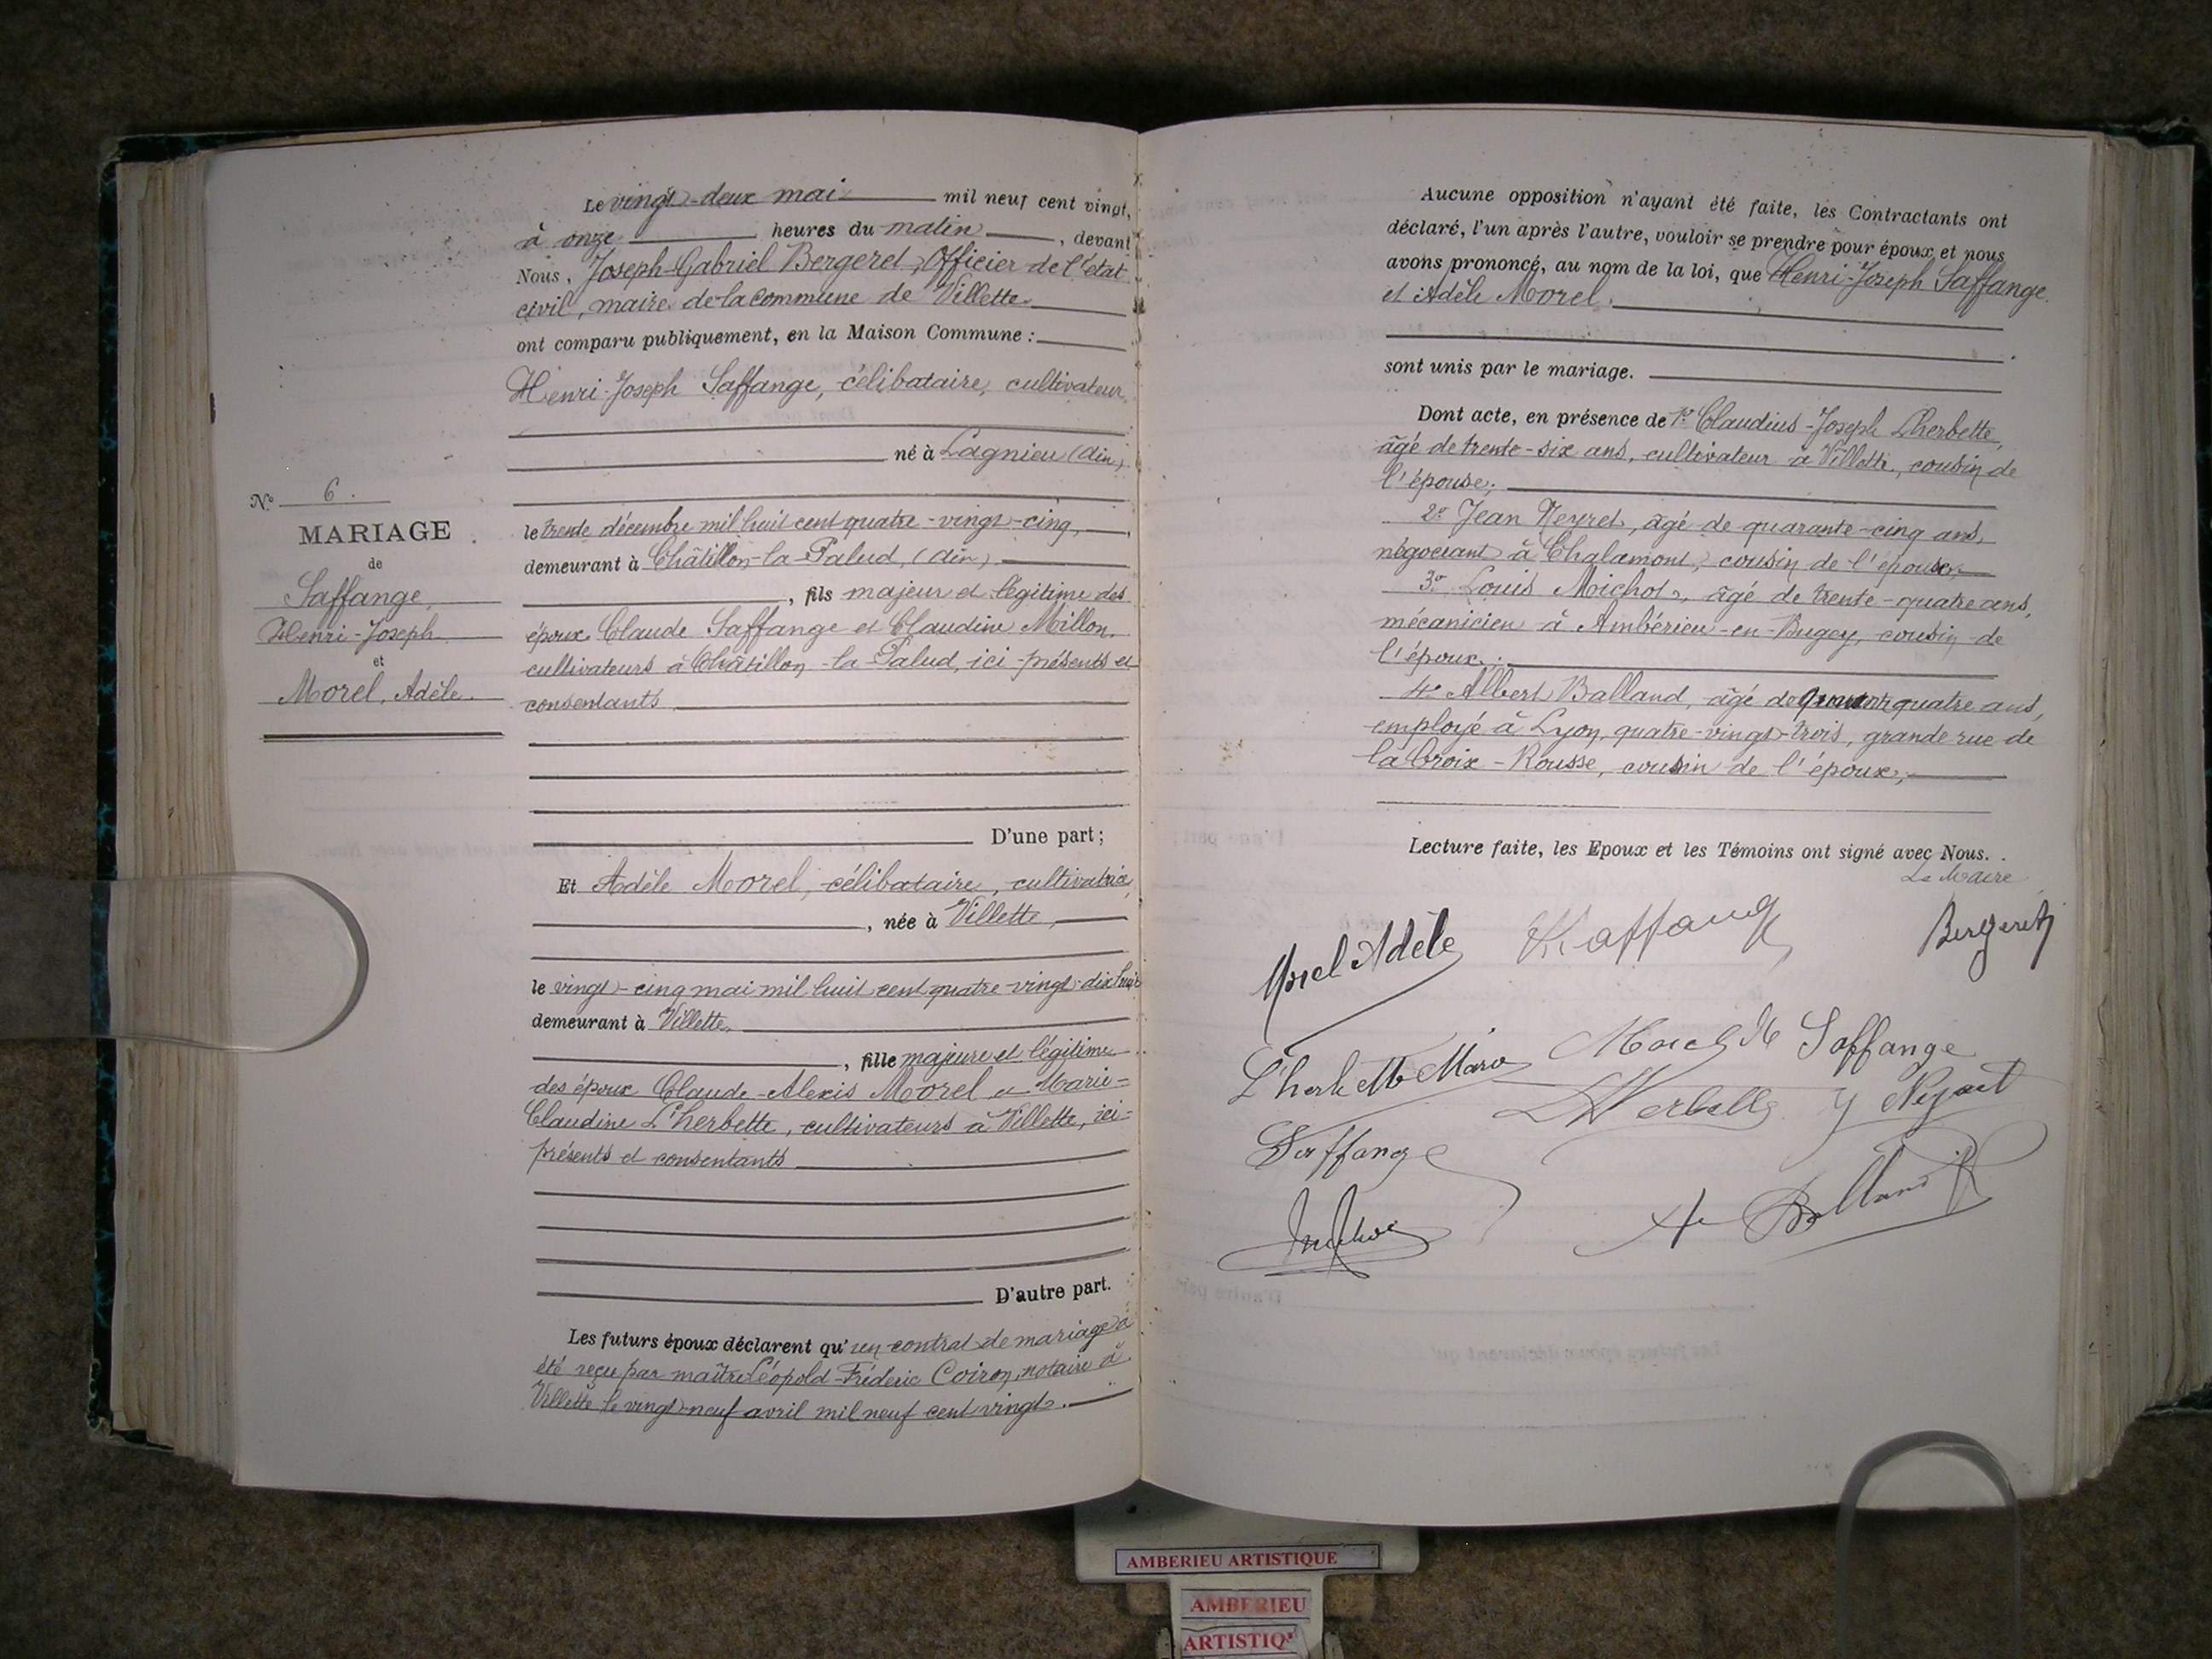 Le vingt-deux mai mil neuf cent vingt,
à onze heures du matin, devant
Nous, Joseph-Gabriel Bergeret, Officier de l'état
civil, maire de la commune de Villette
ont comparu publiquement, en la Maison Commune :
Henri-Joseph Saffange, célibataire, cultivateur,
né à Lagnieu (Ain)
le trente décembre mil huit cent quatre-vingt-cinq,
demeurant à Châtillon-la-Palud, (Ain)
, fils majeur et légitime des
époux Claude Saffange et Claudine Millon,
cultivateurs à Châtillon-la-Palud, ici-présents et
consentants
D'une part ;
N° 6.
MARIAGE
de
Saffange,
Henri-Joseph
et
Morel, Adèle.
Et Adèle Morel, célibataire, cultivatrice,
, née à Villette,
le vingt-cinq mai mil huit cent quatre-vingt-dix huit
demeurant à Villette,
, fille majeure et légitime
des époux Claude-Alexis Morel et Marie=
Claudine L'herbette, cultivateurs à Villette, ici=
présents et consentants
D'autre part.
Les futurs époux déclarent qu'un contrat de mariage a
été reçu par maître Léopold-Fréderic Coiron, notaire à
Villette le vingt-neuf avril mil neuf cent vingt.
Aucune opposition n'ayant été faite, les Contractants ont
déclaré, l'un après l'autre, vouloir se prendre pour époux et nous
avons prononcé, au nom de la loi, que Henri-Joseph Saffange
et Adèle Morel.
sont unis par le mariage.
Dont acte, en présence de 1° Claudius-Joseph Lherbette,
âgé de trente-six ans, cultivateur à Villette, cousin de
l'épouse;
2° Jean Neyret, âgé de quarante-cinq ans,
négociant à Chalamont, cousin de l'épouse;
3° Louis Michot, âgé de trente-quatre ans,
mécanicien à Ambérieu-en-Bugey, cousin de
l'époux;
4° Albert Balland, âgé de quatre ans,
employé à Lyon, quatre-vingt-trois, grande rue de
la Croix-Rousse, cousin de l'époux;
Lecture faite, les Epoux et les Témoins ont signé avec Nous.
Le Maire
Morel Adèle Saffange Bergeret
L'herbette Marie Morel Saffange
Lherbette J Neyret
Saffange
Michot A Balland
AMBERIEU ARTISTIQUE
AMBERIEU
ARTISTIQ